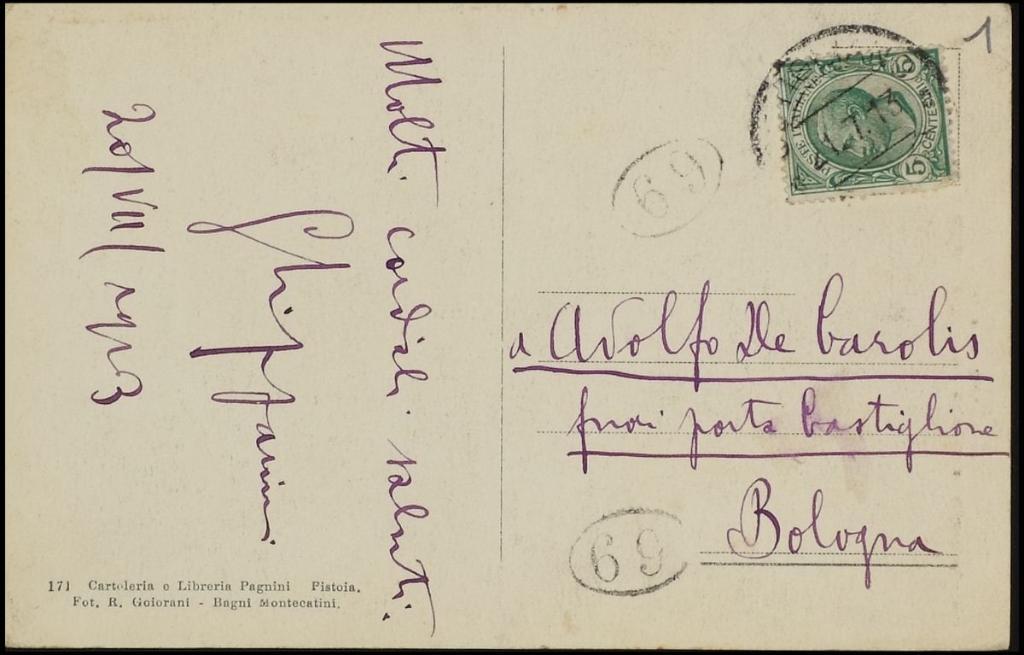 Molti cordiali saluti.
20/VII/1913
a Adolfo De Carolis
fuori porta Castiglione
Bologna
171 Cartoleria e Libreria Pagnini Pistoia.
Fot. R. Goiorani - Bagni Montecatini.
POSTE ITALIANE
CENTESIMI
5
5
7.13
69
69
1